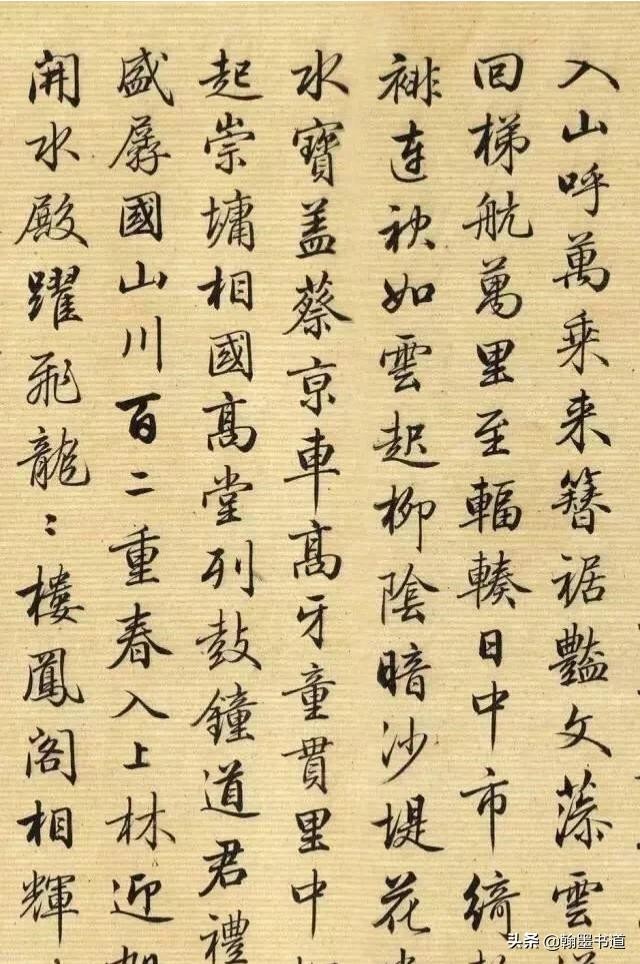 入山呼萬乘来簪裾豔文藻雲
回梯航萬里至輻輳日中市綺
連袂如雲起柳陰暗沙堤花
水寶盖蔡京車高牙童貫里中
起崇墉相國高堂列鼓鐘道君禮
盛孱國山川百二重春入上林迎
開水殿躍飛龍〻樓鳳閣相輝
头条 @翰墨书道